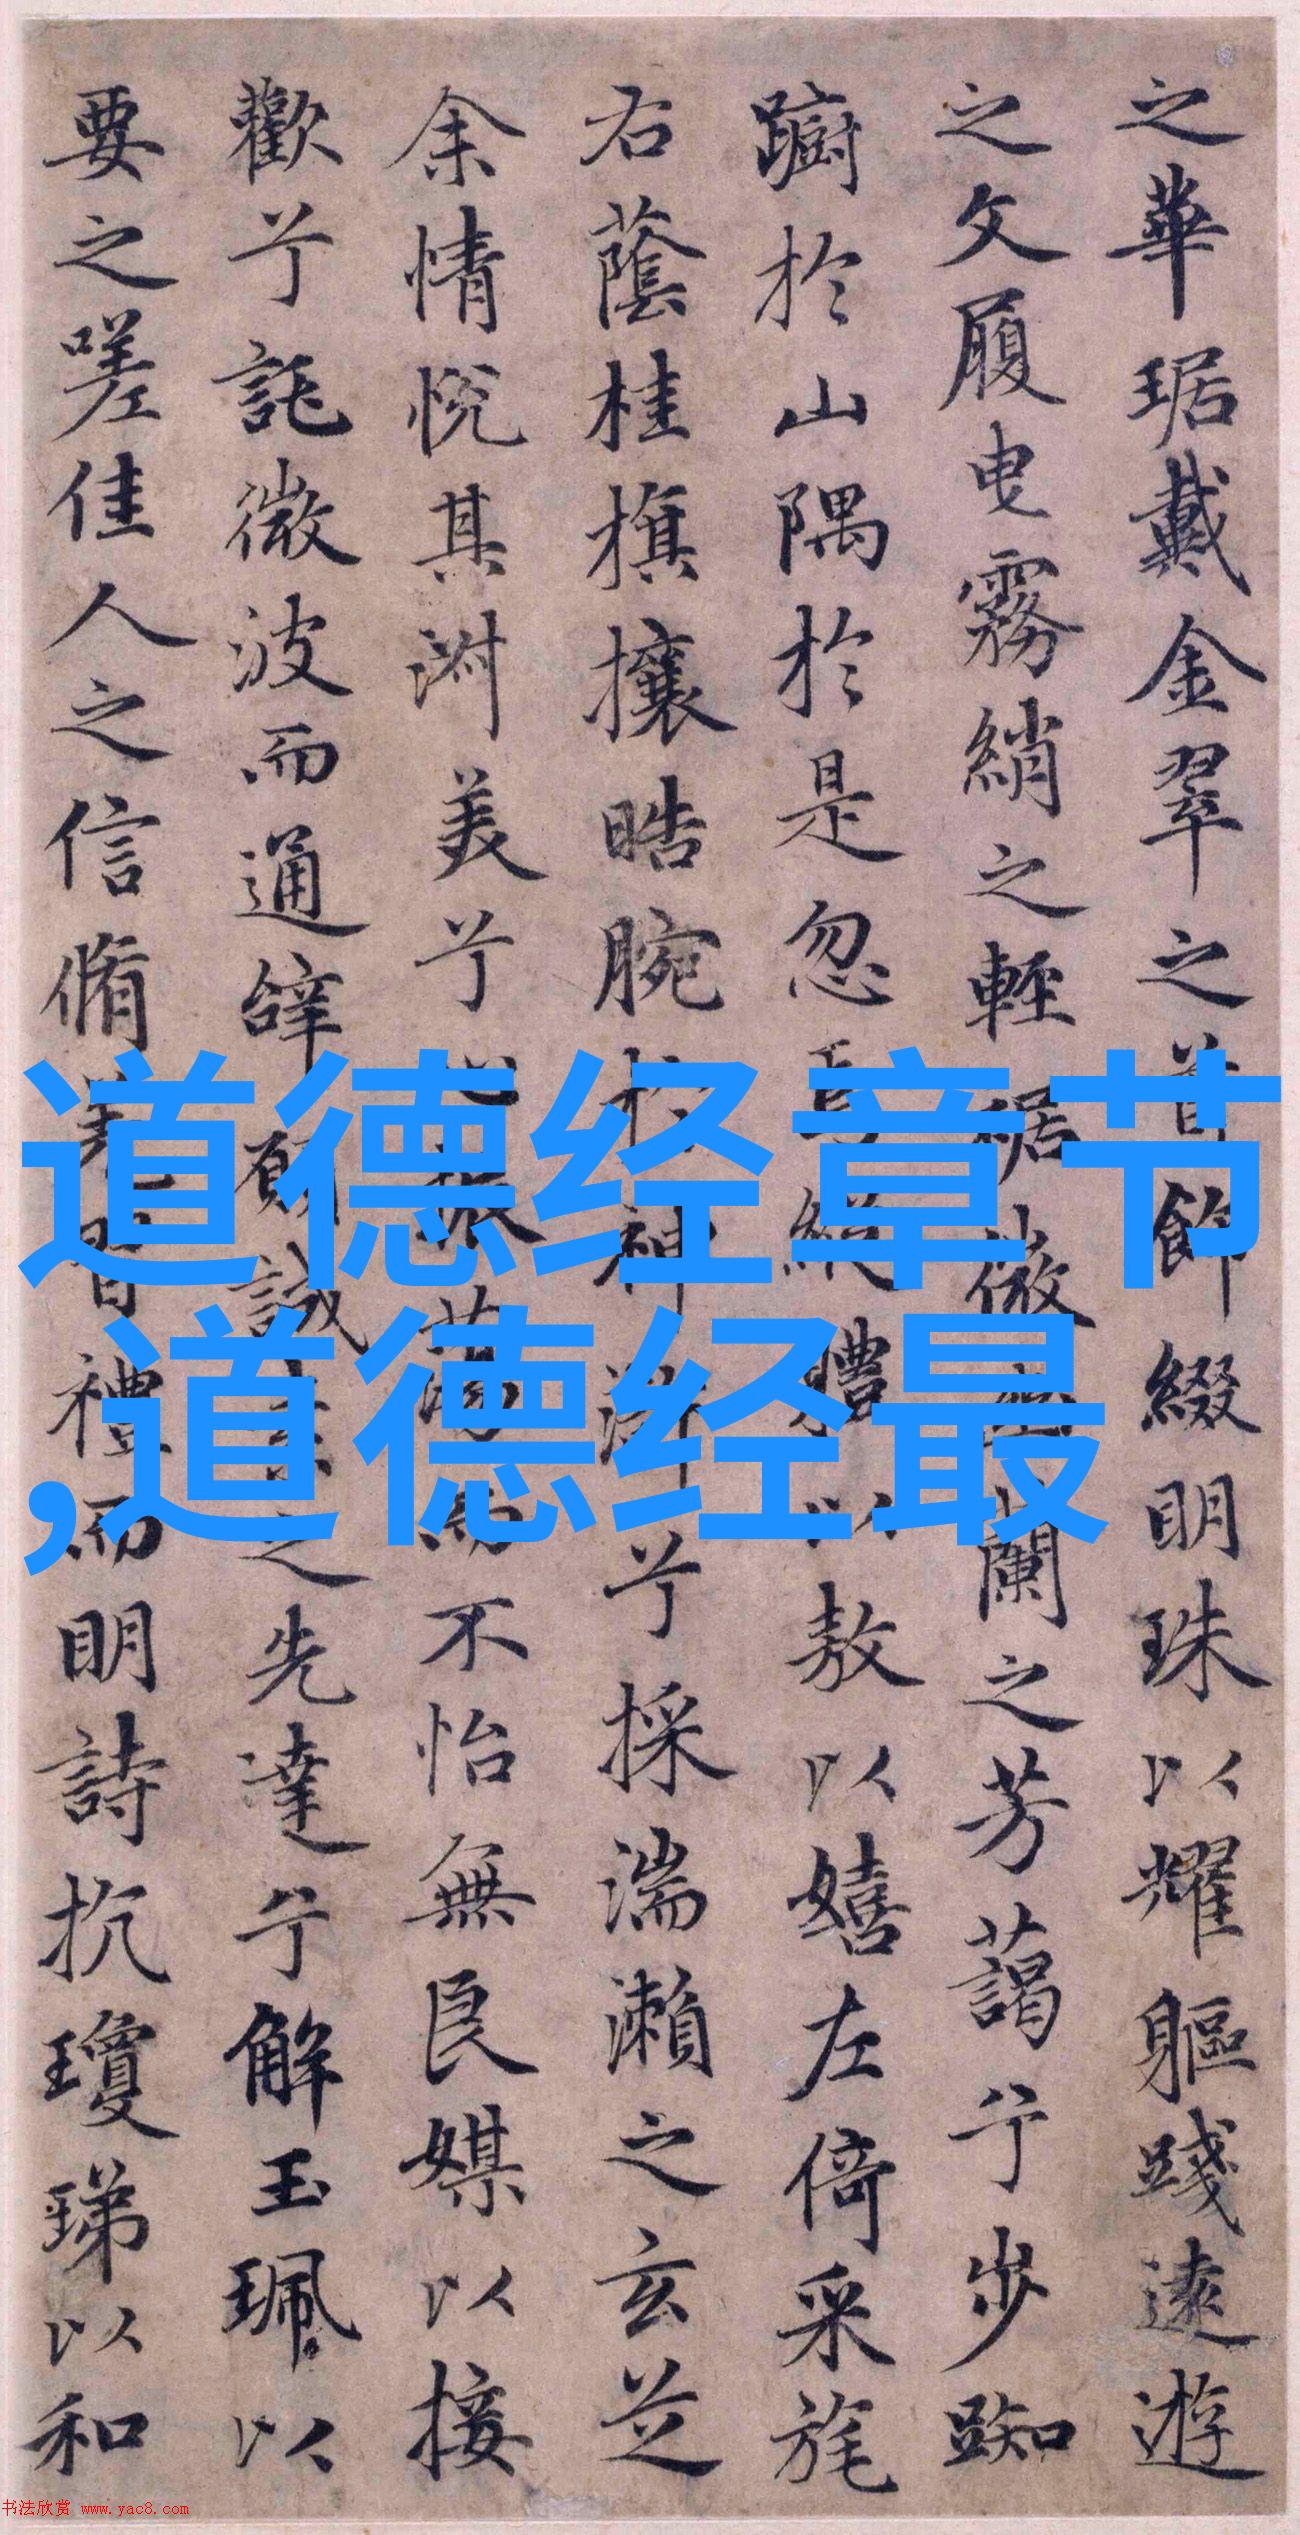 之華琚戴金翠之首飾綴明珠以耀軀踐遠遊
之文履曳霧綃之輕裾微蘭之芳藹兮步踟
躕於山隅於是忽焉縱體以敖以嬉左倚采旄
右蔭桂旗攘皓腕於神滸兮採湍瀨之玄芝
余情悅其淑美兮心振蕩而不怡無良媒以接
歡兮託微波而通辭願誠素之先達兮解玉珮以
要之嗟佳人之信脩羌習禮而明詩抗瓊珶以和
道德经章节
,道德经最
书法欣赏 www.yac8.com